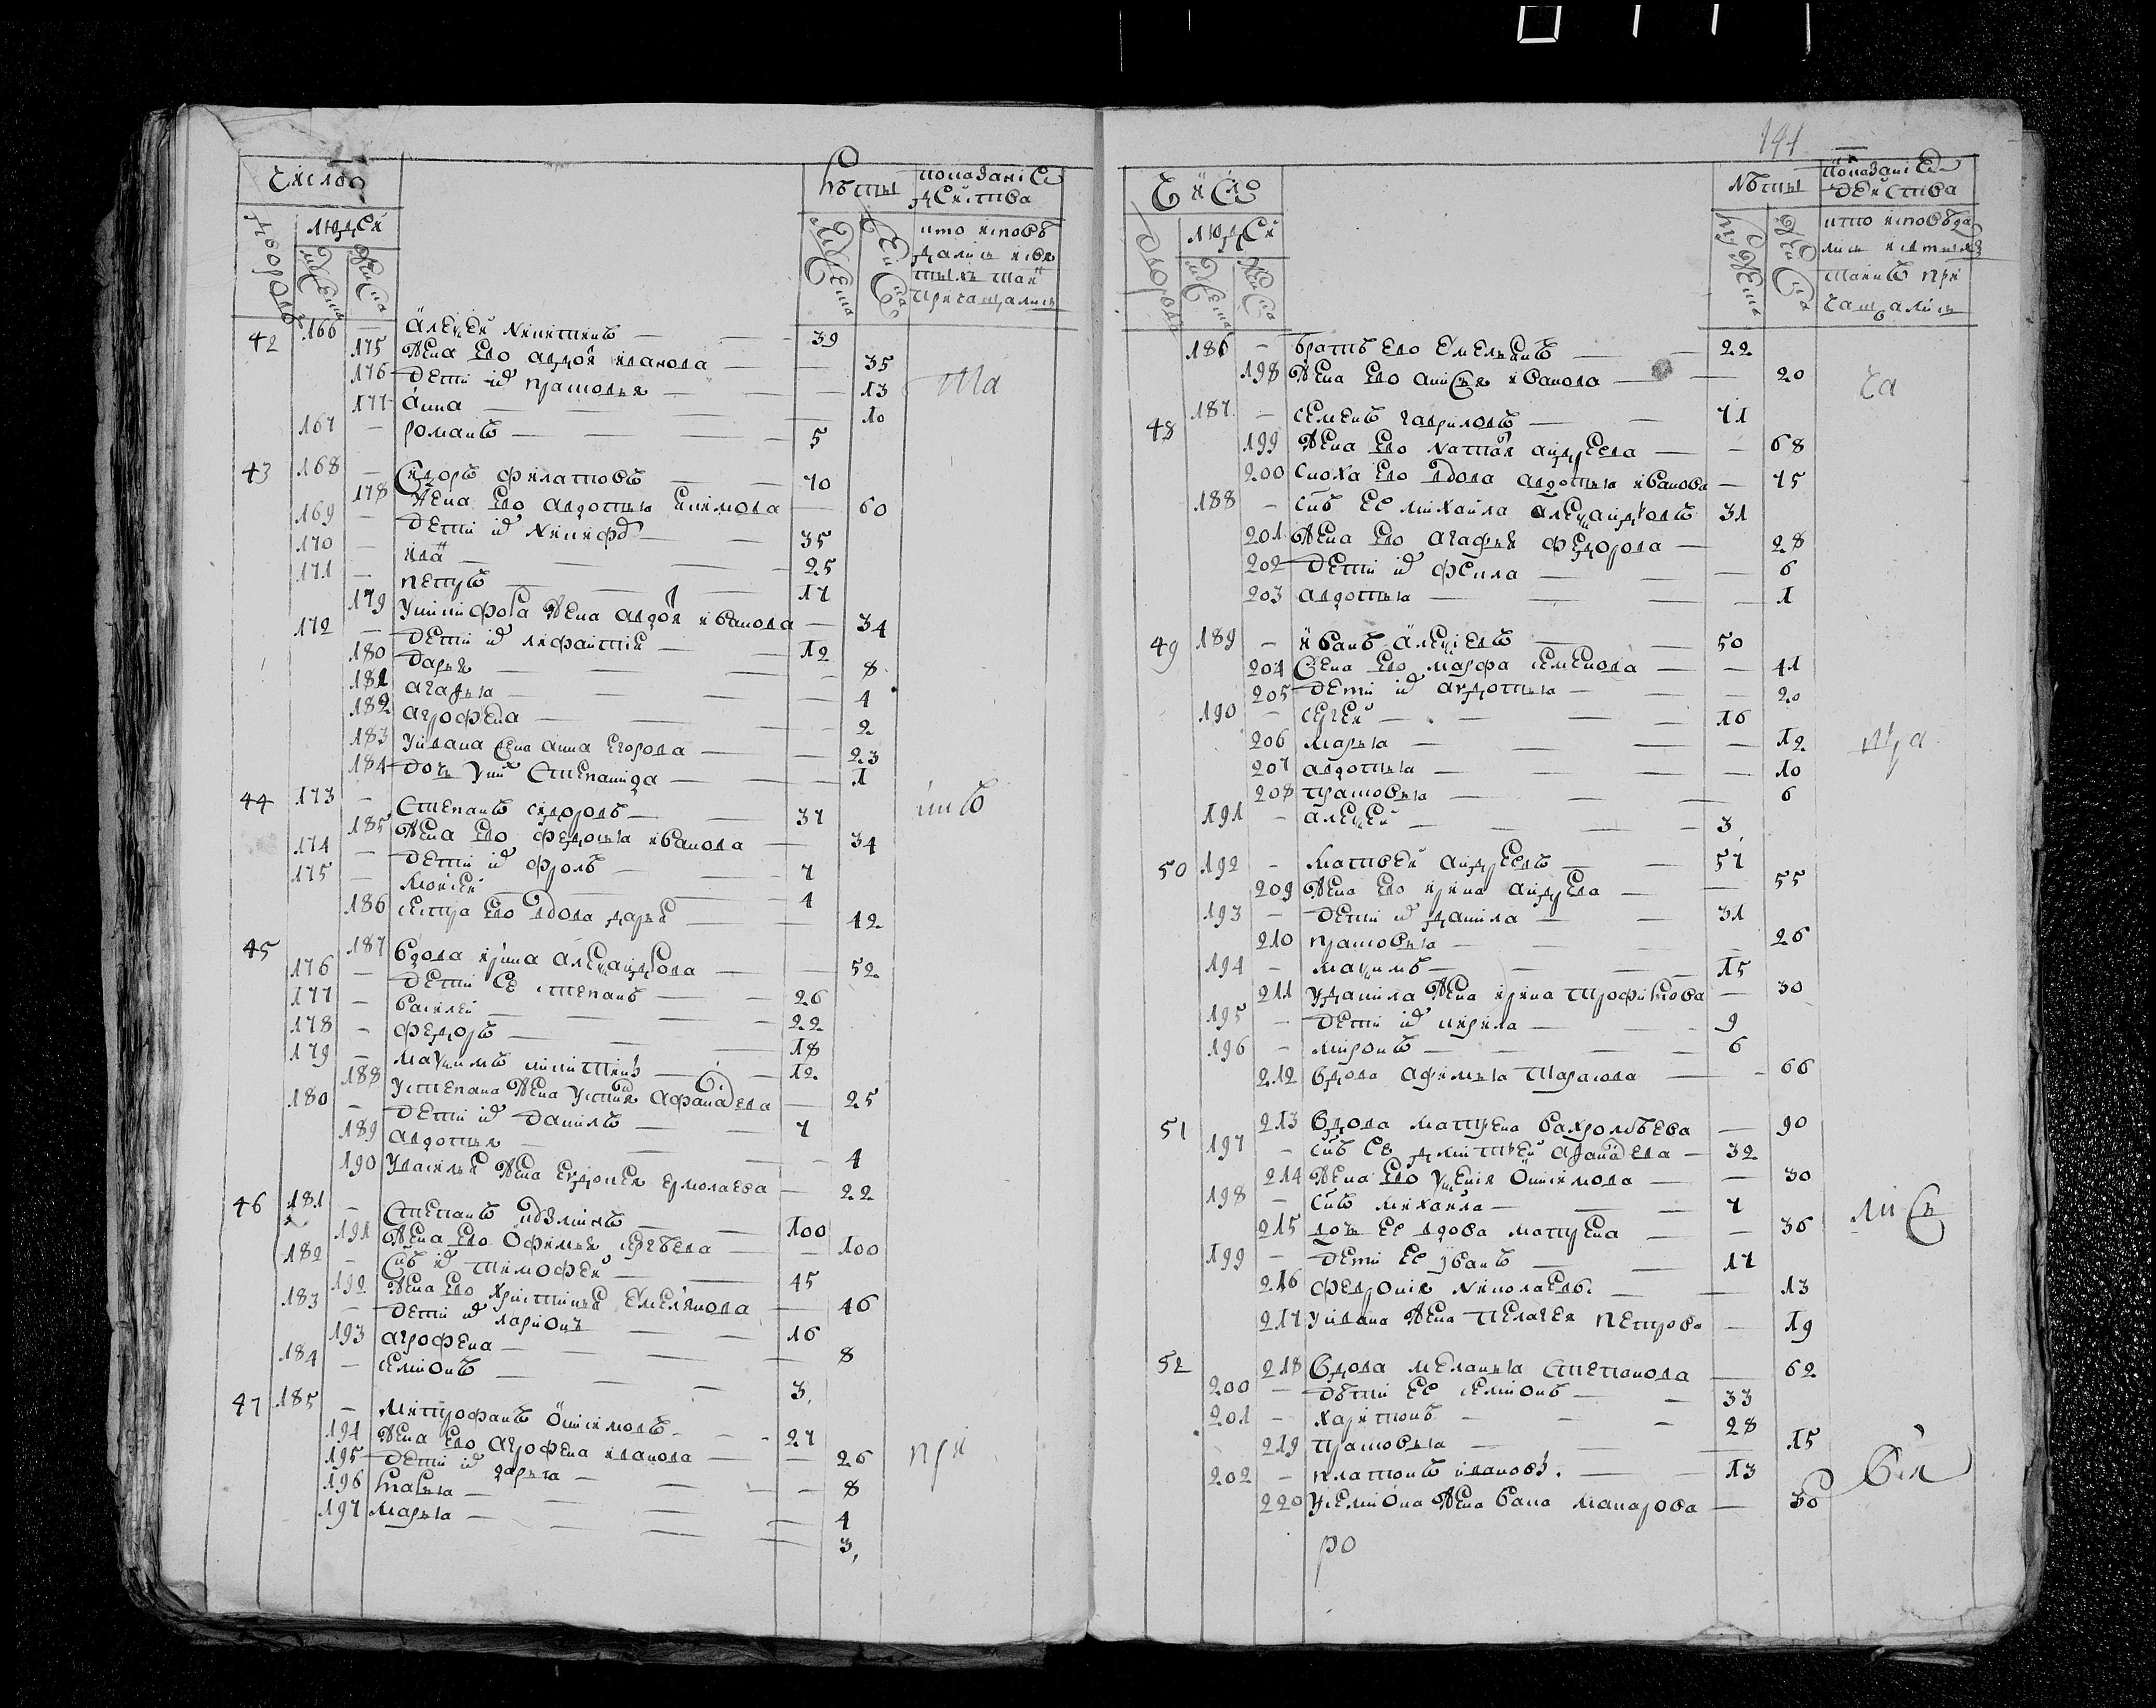 Число
Лѣты
показание
действа
дворовъ
людей
мужеска
женска
мужеска
женска
кто исповѣ
дались и свя
тыхъ таи
причащались
42 166 — Алеѯей Никитинъ — 39
175 Жена ево авдоя иванова — 35
176 дети их прасковья — 13
177 Анна — 10
та
167 — романъ — 5
43 168 — Сидоръ филатовъ — 70
178 Жена ево авдотья екимова — 60
169 — дети их Никифо — 35
170 — ива — 25
171 — петръ — 17
179 У никифора жена авдоя иванова — 34
172 — дети их лифантие — 12
180 дарья — 8
181 агафья — 4
182 аграфена — 2
183 У ивана жена анна егорова — 23
184 дочь у них Степанида — 1
44 173 — Степанъ сидоровъ — 37
инъ
185 Жена ево федосья иванова — 34
174 — дети их фролъ — 7
175 — Моисей — 4
186 сестра ево вдова дарья — 42
45 187 Вдова ирина алеѯандрова — 52
176 — дети ее степанъ — 26
177 — василей — 22
178 — федоръ — 18
179 — маѯимъ никитинъ — 12
188 У степана жена устинья афанасева — 25
180 — дети их данилъ — 7
189 авдотья — 4
190 У василья жена евдокея ермолаева — 22
46 181 — Степанъ — 100
191 Жена ево офимья сергѣева — 100
182 — Снъ их тимофей — 45
192 Жена ево христинья емельянова — 46
183 — дети их ларионъ — 16
193 аграфена — 8
184 — семионъ — 3
47 185 — Митрофанъ онисимовъ — 27
194 Жена ево аграфена иванова — 26
при
195 дети их дарья — 8
196 марья — 4
197 марья — 3
191
Число
Лѣты
показание
действа
дворовъ
людей
мужеска
женска
мужеска
женска
кто исповѣда
лись и святыхъ
таинъ при
чащались
186 — братъ ево емельянъ — 22
198 Жена ево анисья иванова — 20
ча
48 187 — семенъ гавриловъ — 71
199 Жена ево катѣя андреева — 68
200 сноха ево вдова авдотья иванова — 45
188 — снъ ее михаила алеѯандровъ 31
201 Жена ево агафья федорова — 28
202 дети их фекла — 6
203 авдотья — 1
49 189 — иванъ алеѯеевъ — 50
204 Жена ево марфа семенова — 41
205 дети их авдотья — 20
190 — сергей — 16
206 марья — 12
ща
207 авдотья — 10
208 прасковья — 6
191 — алеѯей — 3
50 192 — Матвей андреевъ — 57
209 Жена ево ирина андреева — 55
193 — дети их данила — 31
210 прасковья — 26
194 — маѯимъ — 15
211 У данила жена ирина трофимова — 30
195 — дети их кирила — 9
196 — миронъ — 6
212 вдова афимья тарасова — 66
51 213 Вдова матрена варѳоломѣева — 90
197 — снъ ее дмитрей афанасева — 32
214 Жена ево уѯения онисимова — 30
198 — снъ михаила — 7
лись
215 дочь ее вдова матрена — 36
199 — дети ее иванъ — 17
216 федосия николаевъ — 13
217 У ивана жена пелагея петрова — 19
52 218 Вдова меланья степанова — 62
200 — дѣти ее семионъ — 33
201 — харитонъ — 28
219 прасковья — 15
202 — платонъ ивановъ — 13
220 У семиона жена вара макарова — 30
ро